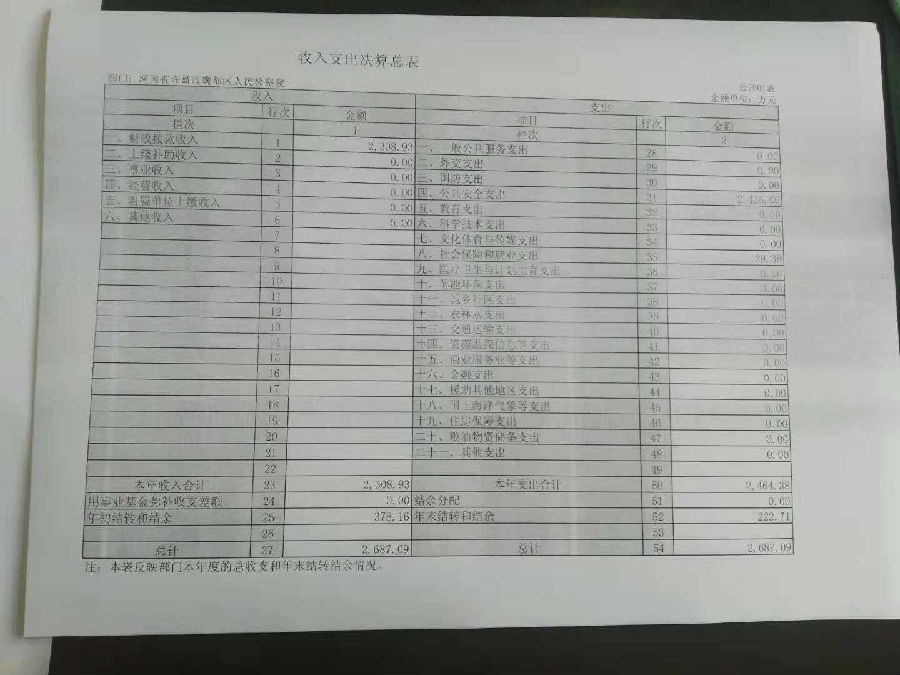 收入支出决算总表
部门：河南省许昌市魏都区人民检察院
公开01表
金额单位：万元
收入 支出
项目 行次 金额 项目 行次 金额
栏次 1 栏次 2
一、财政拨款收入 1 2,308.93 一、一般公共服务支出 28 0.00
二、上级补助收入 2 0.00 二、外交支出 29 0.00
三、事业收入 3 0.00 三、国防支出 30 0.00
四、经营收入 4 0.00 四、公共安全支出 31 2,435.00
五、附属单位上缴收入 5 0.00 五、教育支出 32 0.00
六、其他收入 6 0.00 六、科学技术支出 33 0.00
7 七、文化体育与传媒支出 34 0.00
8 八、社会保障和就业支出 35 29.38
9 九、医疗卫生与计划生育支出 36 0.00
10 十、节能环保支出 37 0.00
11 十一、城乡社区支出 38 0.00
12 十二、农林水支出 39 0.00
13 十三、交通运输支出 40 0.00
14 十四、资源勘探信息等支出 41 0.00
15 十五、商业服务业等支出 42 0.00
16 十六、金融支出 43 0.00
17 十七、援助其他地区支出 44 0.00
18 十八、国土海洋气象等支出 45 0.00
19 十九、住房保障支出 46 0.00
20 二十、粮油物资储备支出 47 0.00
21 二十一、其他支出 48 0.00
22 49
本年收入合计 23 2,308.93 本年支出合计 50 2,464.38
用事业基金弥补收支差额 24 0.00 结余分配 51 0.00
年初结转和结余 25 378.16 年末结转和结余 52 222.71
26 53
总计 27 2,687.09 总计 54 2,687.09
注：本表反映部门本年度的总收支和年末结转结余情况。